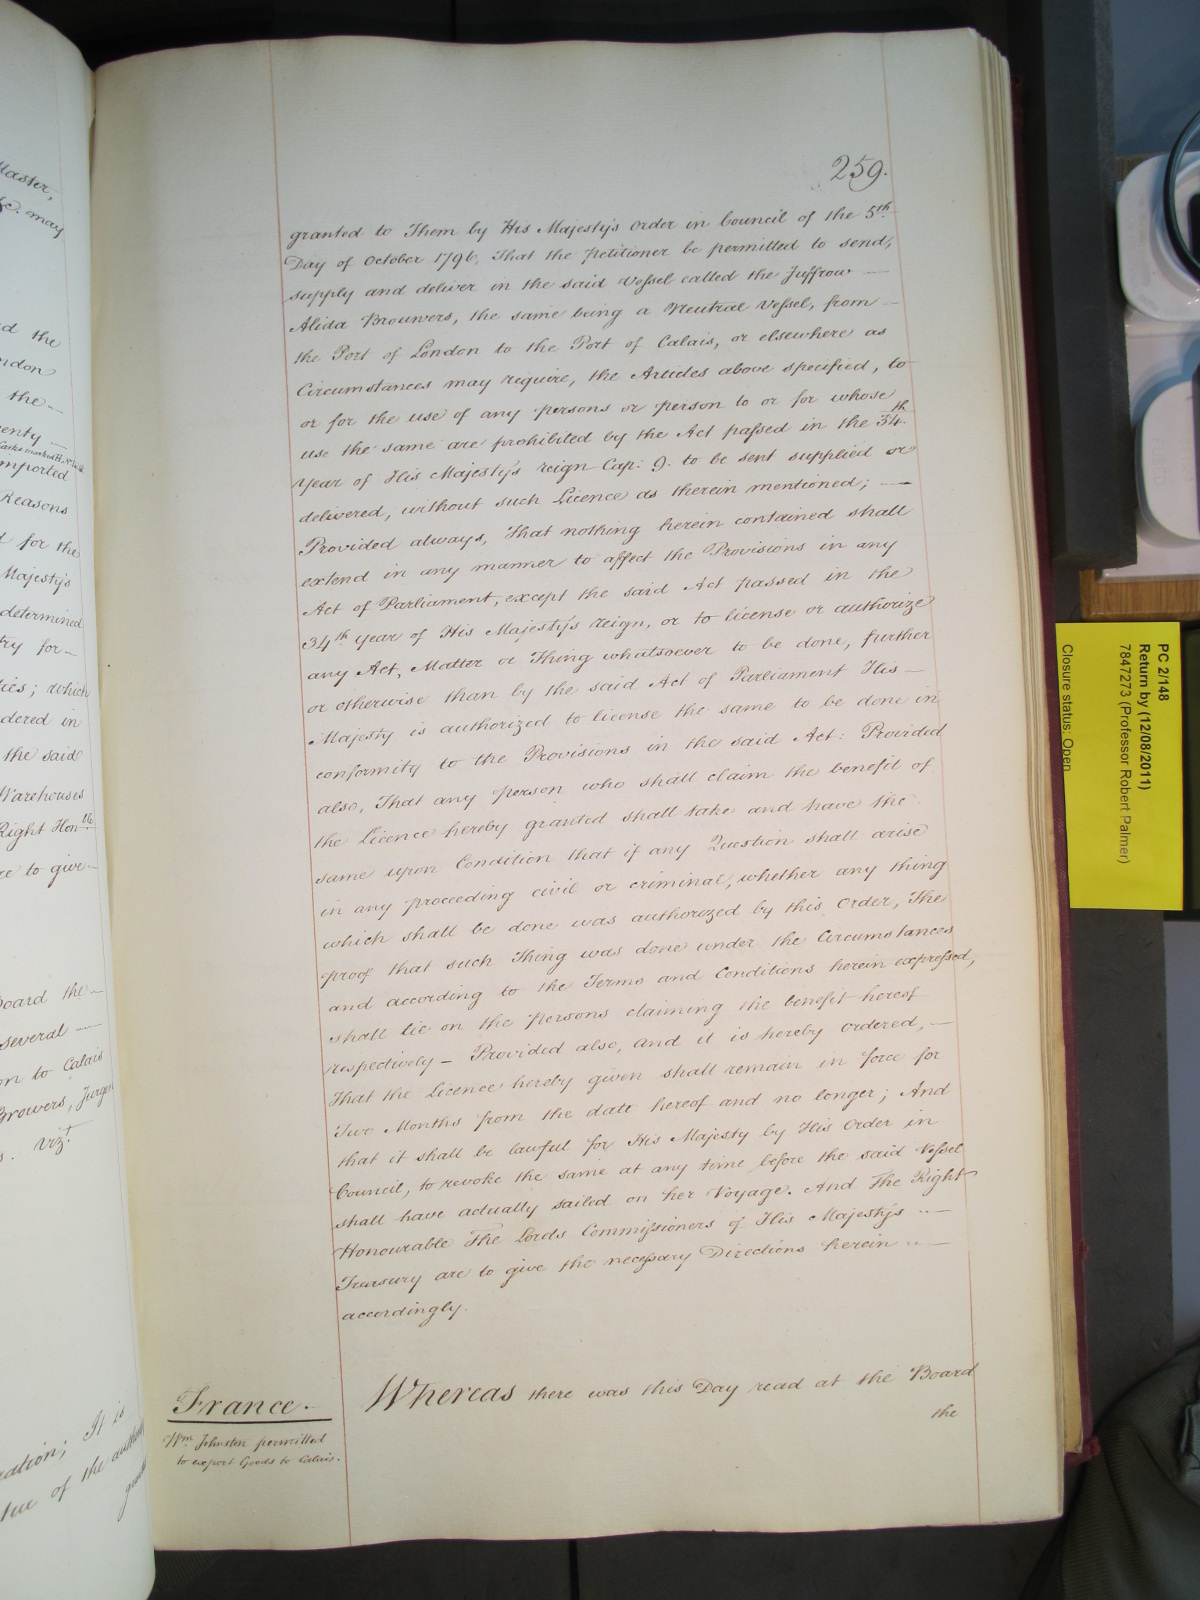 Master,
&c. may
d the
ndon
the
enty
mported
Reasons
d for the
Majesty's
determined
try for
ties; which
dered in
the said
Warehouses
Right Hon.ble
re to give
board the
several
on to Calais
Growers, Jurgen
s. vizt.
ration; It is
tue of the authority
259.
granted to Them by His Majesty's Order in Council of the 5th.
Day of October 1796, That the Petitioner be permitted to send,
supply and deliver in the said Vessel called the Juffrow
Alida Brouwers, the same being a Neutral Vessel, from
the Port of London to the Port of Calais, or elsewhere as
Circumstances may require, the Articles above specified, to
or for the use of any persons or person to or for whose
use the same are prohibited by the Act passed in the 34th.
Year of His Majesty's reign Cap: 9. to be sent supplied or
delivered, without such Licence as therein mentioned;
Provided always, That nothing herein contained shall
extend in any manner to affect the Provisions in any
Act of Parliament, except the said Act passed in the
34th. year of His Majesty's reign, or to license or authorize
any Act, Matter or Thing whatsoever to be done, further
or otherwise than by the said Act of Parliament His
Majesty is authorized to license the same to be done in
conformity to the Provisions in the said Act: Provided
also, That any person who shall claim the benefit of
the Licence hereby granted shall take and have the
same upon Condition that if any Question shall arise
in any proceeding civil or criminal, whether any thing
which shall be done was authorized by this Order, The
proof that such Thing was done under the Circumstances
and according to the Terms and Conditions herein expressed,
shall lie on the persons claiming the benefit hereof
respectively - Provided also, and it is hereby ordered,
That the Licence hereby given shall remain in force for
Two Months from the date hereof and no longer; And
that it shall be lawful for His Majesty by His Order in
Council, to revoke the same at any time before the said Vessel
shall have actually sailed on her Voyage. And The Right
Honourable The Lords Commissioners of His Majesty's
Treasury are to give the necessary Directions herein
accordingly.
France.
Wm. Johnston permitted
to export Goods to Calais.
Whereas there was this Day read at the Board
the
PC 2/148
Return by (12/08/2011)
7847273 (Professor Robert Palmer)
Closure status: Open